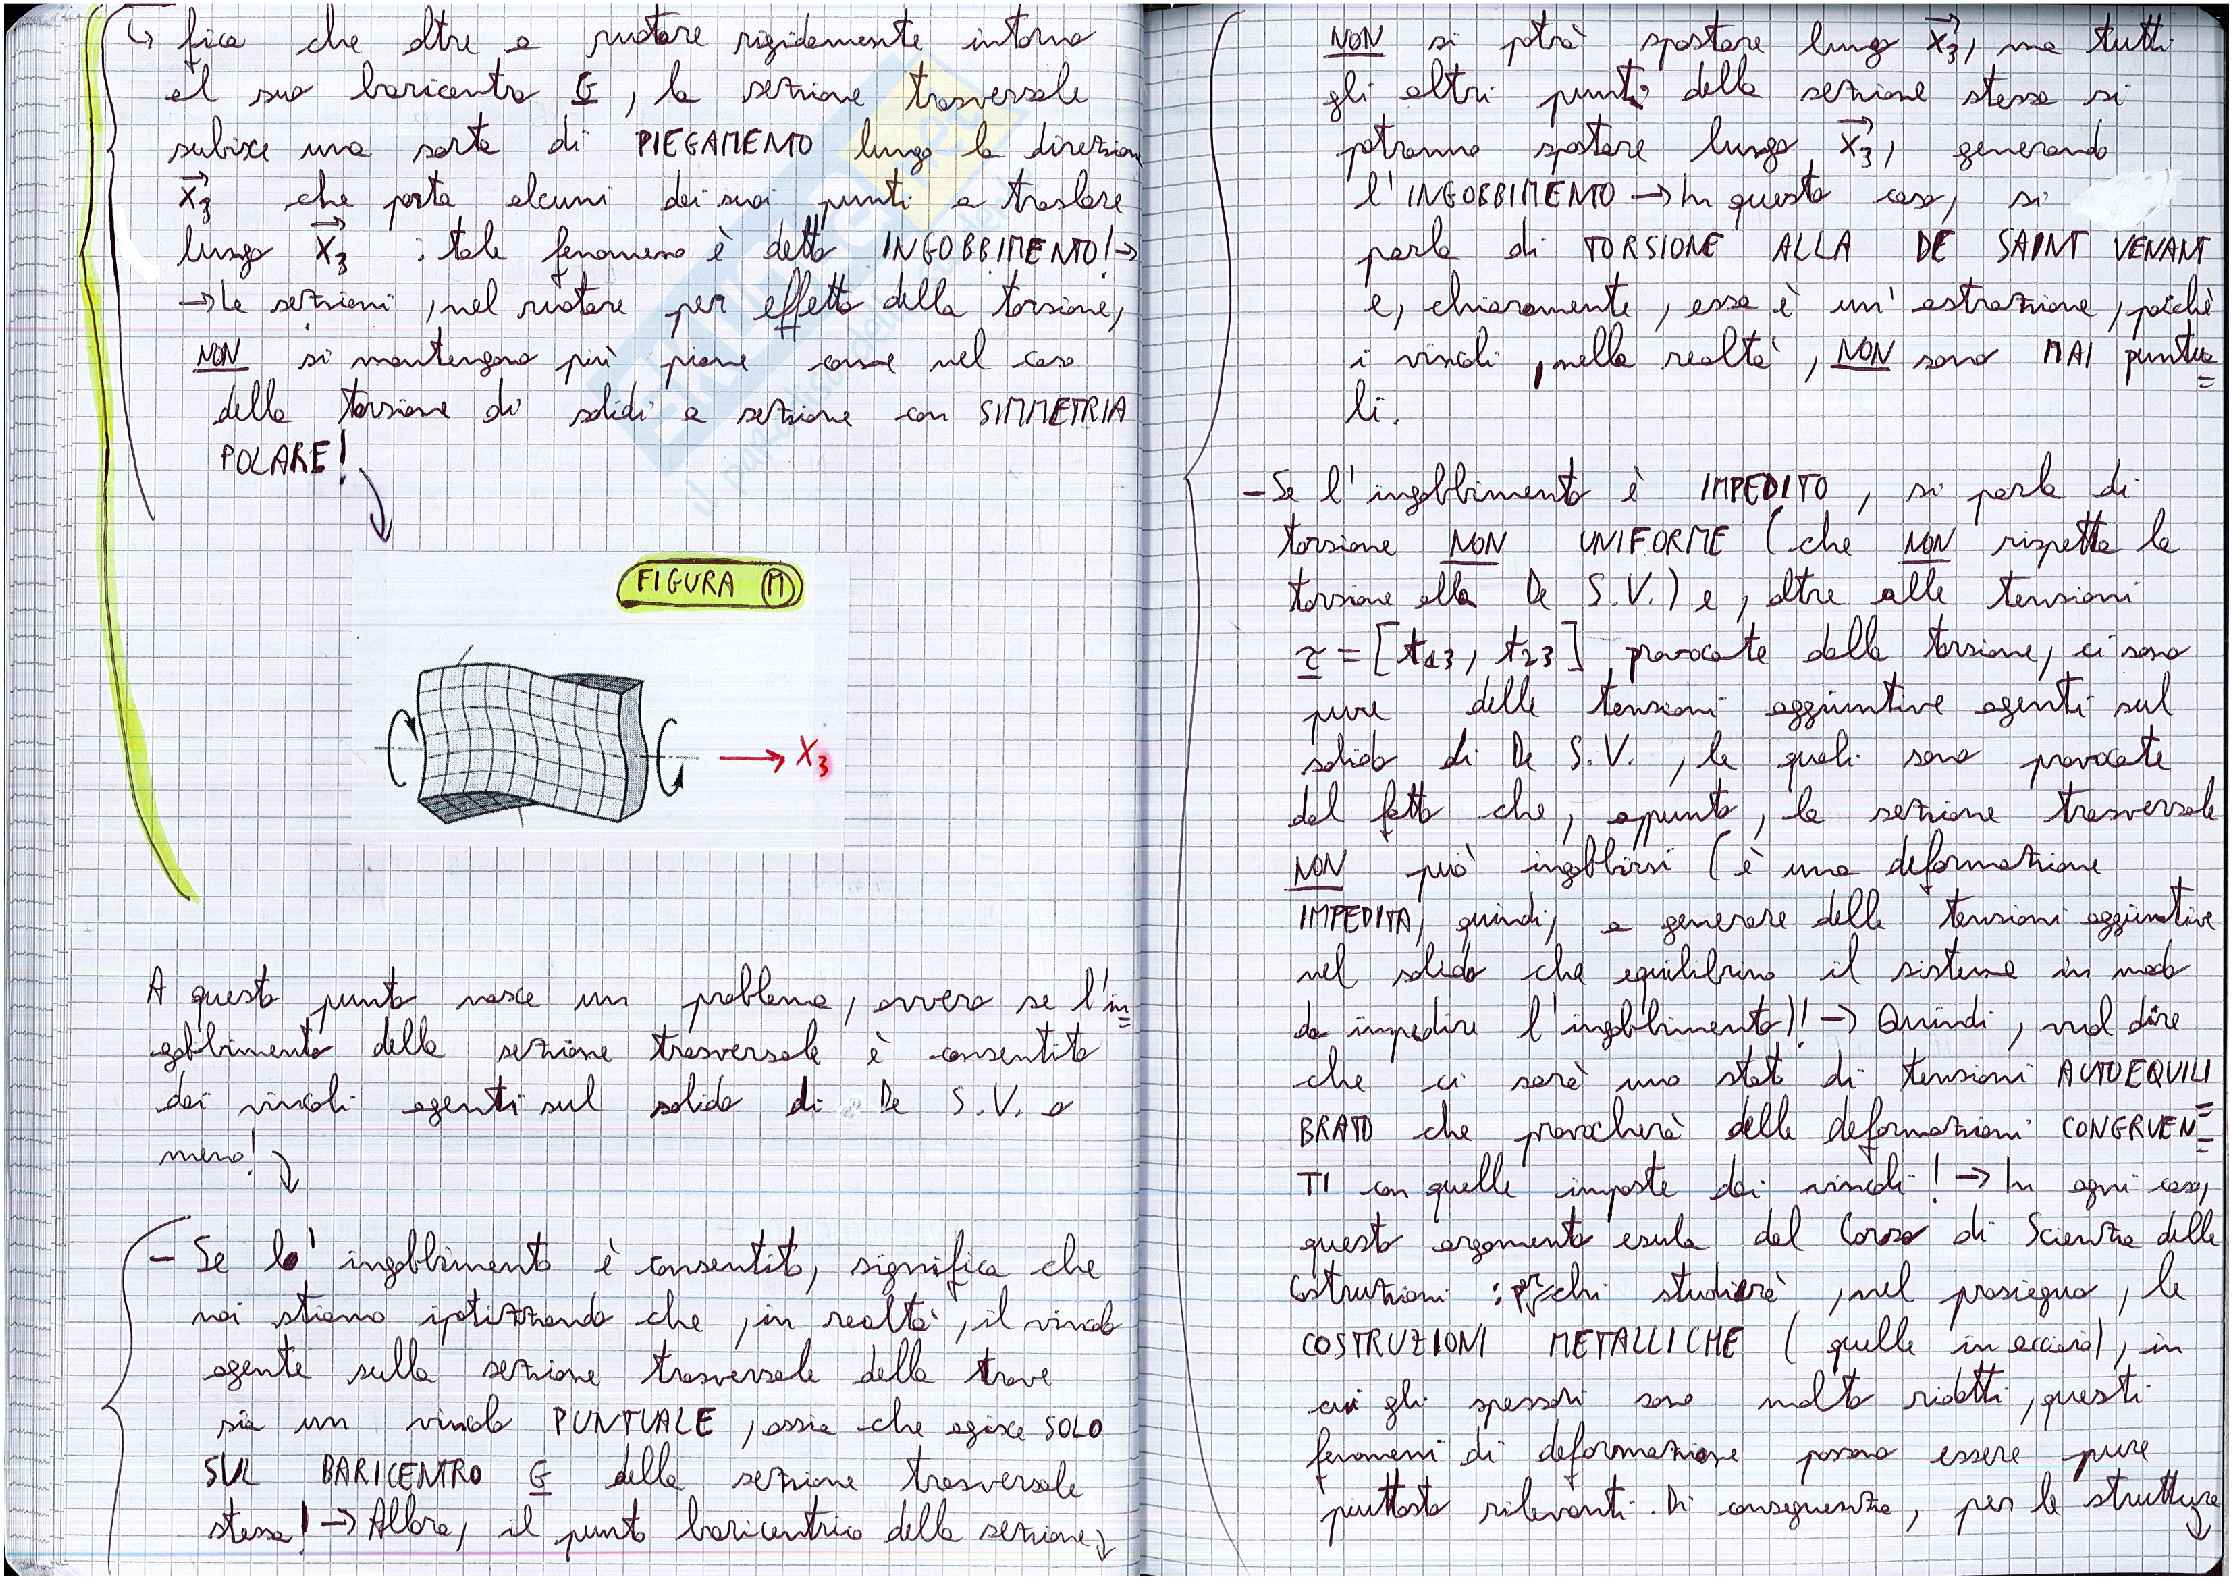 ↳ fica che oltre a ruotare rigidamente intorno
al suo baricentro G, la sezione trasversale
subisce una sorta di PIEGAMENTO lungo la direzion
x⃗3 che porta alcuni dei suoi punti a traslare
lungo x⃗3 : tale fenomeno è detto INGOBBIMENTO! →
→ Le sezioni, nel ruotare per effetto della torsione,
NON si mantengono più piane come nel caso
della torsione di solidi a sezione con SIMMETRIA
POLARE!
FIGURA M
X3
A questo punto nasce un problema, ovvero se l'in=
gobbimento della sezione trasversale è consentito
dai vincoli agenti sul solido di De S.V. o
meno!
- Se l' ingobbimento è consentito, significa che
noi stiamo ipotizzando che, in realtà, il vincolo
agente sulla sezione trasversale della trave
sia un vincolo PUNTUALE, ossia che agisce SOLO
SUL BARICENTRO G della sezione trasversale
stessa! → Allora, il punto baricentrico della sezione
NON si potrà spostare lungo x⃗3, ma tutti
gli altri punti della sezione stessa si
potranno spostare lungo x⃗3, generando
l'INGOBBIMENTO → In questo caso, si
parla di TORSIONE ALLA DE SAINT VENANT
e, chiaramente, essa è un'astrazione, poichè
i vincoli, nella realtà, NON sono MAI puntua=
li.
- Se l'ingobbimento è IMPEDITO, si parla di
torsione NON UNIFORME (che NON rispetta la
torsione alla De S.V.) e, oltre alle tensioni
τ = [t13, t23] provocate dalla torsione, ci sono
pure delle tensioni aggiuntive agenti sul
solido di De S.V., le quali sono provocate
dal fatto che, appunto, la sezione trasversale
NON può ingobbirsi (è una deformazione
IMPEDITA, quindi, a generare delle tensioni aggiuntive
nel solido che equilibrino il sistema in modo
da impedire l'ingobbimento)! → Quindi, vuol dire
che ci sarà uno stato di tensioni AUTOEQUILI=
BRATO che provocherà delle deformazioni CONGRUEN=
TI con quelle imposte dai vincoli! → In ogni caso,
questo argomento esula dal Corso di Scienza delle
Costruzioni : per chi studierà, nel prosieguo, le
COSTRUZIONI METALLICHE (quelle in acciaio), in
cui gli spessori sono molto ridotti, questi
fenomeni di deformazione possono essere pure
piuttosto rilevanti. Di conseguenza, per le strutture